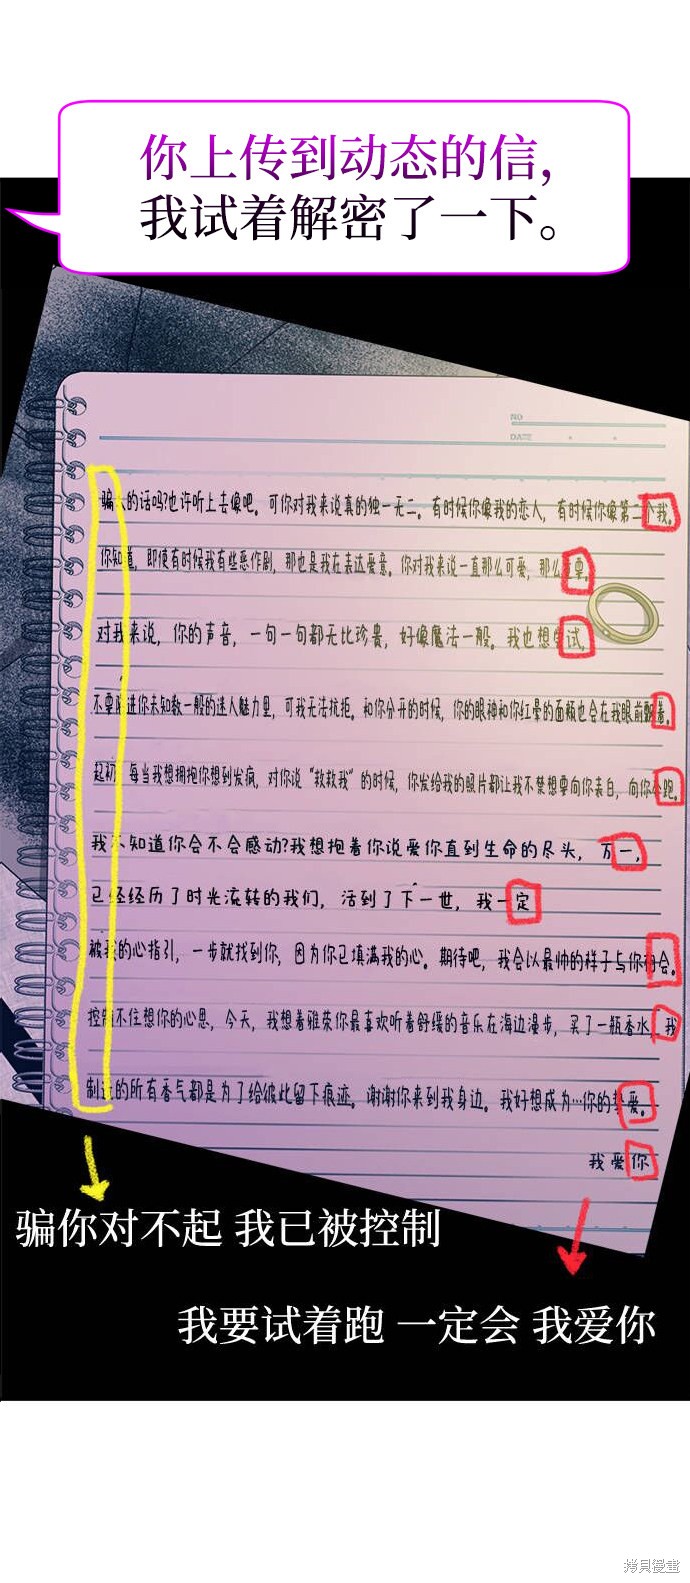 你上传到动态的信,
我试着解密了一下。
NO
DATE
骗人的话吗?也许听上去像吧。可你对我来说真的独一无二。有时候你像我的恋人,有时候你像第二个我。
你知道,即便有时候我有些恶作剧,那也是我在表达爱意。你对我来说一直那么可爱,那么重要。
对我来说,你的声音,一句一句都无比珍贵,好像魔法一般。我也想尝试,
不要陷进你未知数一般的迷人魅力里,可我无法抗拒。和你分开的时候,你的眼神和你红晕的面颊也会在我眼前飘着。
起初,每当我想拥抱你想到发疯,对你说“救救我”的时候,你发给我的照片都让我不禁想要向你表白,向你奔跑。
我不知道你会不会感动?我想抱着你说爱你直到生命的尽头,万一,
已经经历了时光流转的我们,活到了下一世,我一定
被我的心指引,一步就找到你,因为你已填满我的心。期待吧,我会以最帅的样子与你相会。
控制不住想你的心思,今天,我想着雅荣你最喜欢听着舒缓的音乐在海边漫步,买了一瓶香水,我
制造的所有香气都是为了给彼此留下痕迹。谢谢你来到我身边。我好想成为…你的挚爱。
我爱你
骗你对不起 我已被控制
我要试着跑 一定会 我爱你
拷貝漫畫